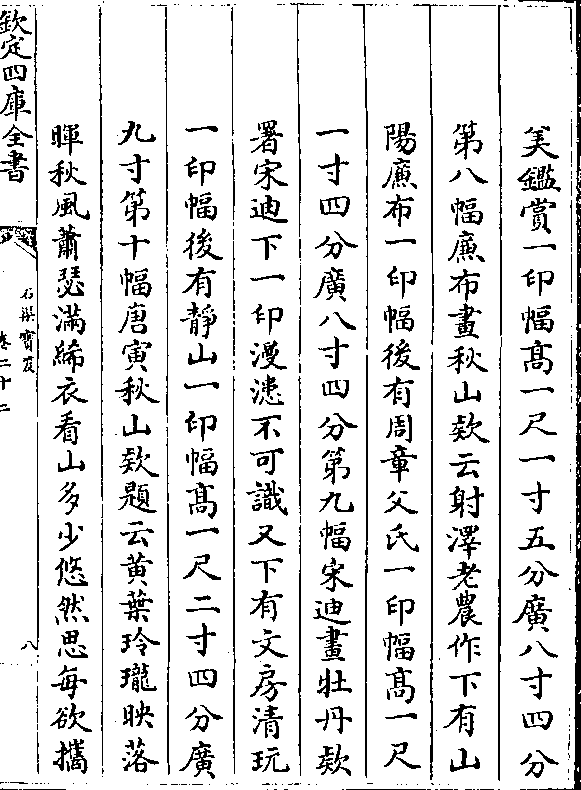 美鑑賞一印幅髙一尺一寸五分廣八寸四分
第八幅㢘布畫秋山欵云射澤老農作下有山
陽㢘布一印幅後有周章父氏一印幅髙一尺
一寸四分廣八寸四分第九幅宋迪畫牡丹欵
署宋迪下一印漫漶不可識又下有文房清玩
一印幅後有靜山一印幅髙一尺二寸四分廣
九寸第十幅唐寅秋山欵題云黄葉玲瓏映落
暉秋風蕭瑟滿絺衣看山多少悠然思每欲攜
欽定四庫全書
石渠寳笈
卷二十二
八